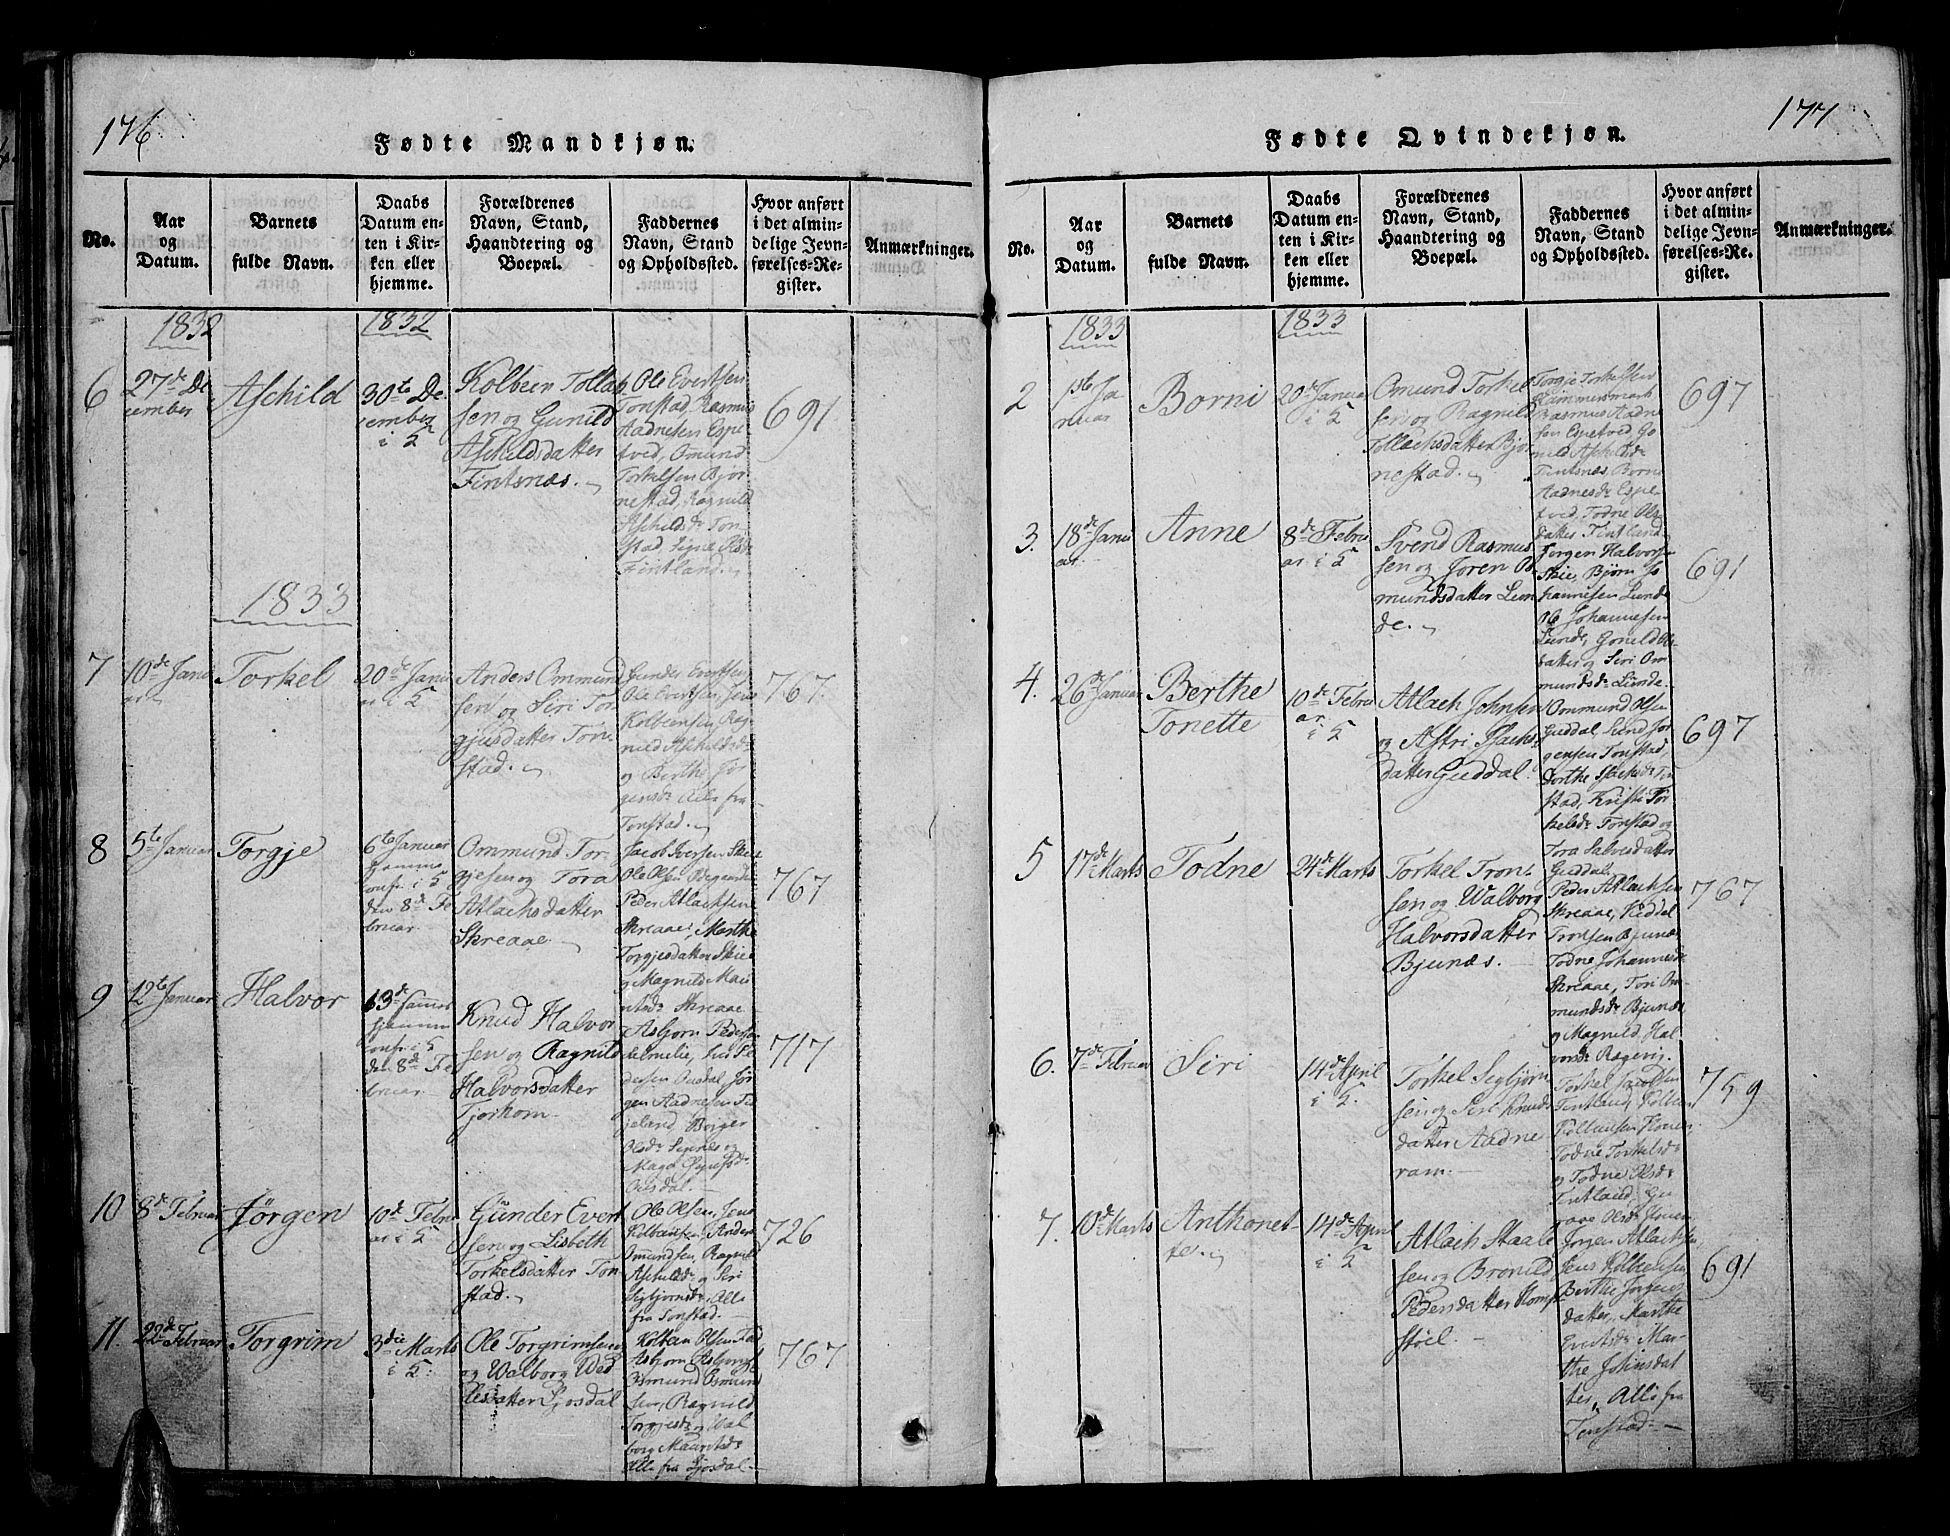 176
Fødte Mandkjøn.
No.
Aar
og
Datum.
Barnets
fulde Navn.
Daabs
Datum en-
ten i Kir-
ken eller
hjemme.
Forældrenes
Navn, Stand,
Haandtering og
Boepæl.
Faddernes
Navn, Stand
og Opholdssted.
Hvor anført
i det almin-
delige Jevn-
førelses-Re-
gister.
Anmærkninger.
1832
1832
6
27de De
cember
Aschild
30te De
cember
i 5
Kolbeen Tollac
sen og Gunild
Aschildsdatter
Fintsnæs.
Ole Evertsen
Tonstad, Rasmus
Aadnesen Espe
tved, Omund
Torkelsen Bjør
nestad, Ragnild
Aschildsd. Ton
stad, Signe
Fintland.
691
1833
7
10de Janu
ar
Torkel
20de Janu
ar i 5
Anders Ommund
sen og Siri Tor
gjusdatter Ton
stad.
Gunder Evertsen,
Ole Evertsen, Jens
Kolbeensen, Rag
nild Aschildsd.
og Berthe Jør
gensd. Alle fra
Tonstad.
767
8
5te Januar
Torgje
6te Januar
hjemme
conf. i 5
den 8de Fe
bruar
Ommund Tor
gjesen og Tora
Atlachsdatter
Skreaae
Jacob Iversen Skiei
Ole Olsen
Peder Atlachsen
Skreaae, Marthe
Torgjesdatter Skiei
og Magnild
Skreaae
767
9
12te Januar
Halvor
13de Januar
hjemme
conf. i 5
den 8de Fe
bruar
Knud Halvor
sen og Ragnild
Halvorsdatter
Tjorhom
Asbjørn Peders
dersen Ousdal, Jør
gen Aadnesen
Olsd. Signes og
Ousdal.
717
10
8de Februar
Jørgen
10de Febru
ar i 5
Gunder Evert
sen og Lisbeth
Torkelsdatter Ton
stad.
Ole Olsen, Jens
Kolbensen, Anders
Omundsen, Ragnild
Aschildsd. og Siri
Sigbjørnsd., Alle
fra Tonstad.
726
11.
22de Februar
Torgrim
3die Marts
i 5.
Ole Torgrimsen
og Walborg Ved
lesdatter Ljosdal
Kolbein Olsen
Asbjørn
Osmund Osmund
sen, Ragnild
Torgjesd. og Wal
borg Mauritsd.
Alle fra Ljosdal
767
177
Fødte Qvindekjøn.
No.
Aar
og
Datum.
Barnets
fulde Navn.
Daabs
Datum en-
ten i Kir-
ken eller
hjemme.
Forældrenes
Navn, Stand,
Haandtering og
Boepæl.
Faddernes
Navn, Stand
og Opholdssted.
Hvor anført
i det almin-
delige Jevn-
førelses-Re-
gister.
Anmærkninger.
1833
1833
2
1ste Ja
nuar
Borni
20de Januar
i 5
Omund Torkel
sen og Ragnild
Tollachsdatter Bjør
nestad.
Torgje Torkelsen
Hammersmark
Rasmus Aadne
sen Espetved Go
nild Aschildsd.
Fintsnæs, Borni
Aadnesd. Espe
tved, Todne Ols
datter Fintland
697
3.
18de Janu
ar
Anne
8de Febru
ar i 5
Svend Rasmus
sen og Joren Os
mundsdatter Lun
de.
Jørgen Halvorsen
Skiei, Bjørn Jo
hannesen Lunde
Ole Johannesen
Lunde, Gonild Ols
datter og Siri Om
mundsd. Lunde.
691
4.
26de Januar
Berthe
Tonette
10de Febru
ar.
i 5
Atlach Johnsen
og Astri Isachs
datter Guddal.
Ommund Olsen
Guddal, Svend Jør
gensen Tonstad
Dorthe Isachsd. Ton
stad, Kristi Tor
kelsd. Tonstad og
Tora Salvesdatter
Guddal.
697
5
17de Marts
Todne
24de Marts
Torkel Tron
sen og Walborg
Halvorsdatter
Bjunæs.
Peder Atlachsen
Skreaae, Keddel
Tronsen Bjunæs
Todne Johannesd.
Skreaae, Tori Om
mundsd. Bjunæs
og Magnild Hal
vorsd. Røgevig.
767
6.
7de Februar
Siri
14de April
i 5.
Torkel Sigbjørn
sen og Siri Knuds
datter Aadne
ram.
Torkel Jacobsen
Fintland, Kolben
Todne Torkelsd.
og Todne Olsd.
Fintland, Gu
759
7.
10de Marts
Anthonet-
te.
14de April
i 5
Atlach Staale
sen og Bronild
Pedersdatter Homp
støel.
Jørgen Atlachsen,
Jens Kolbensen
Berthe Jørgens
datter, Marthe
Evertsd. Mar
the Johnsdat
ter, Alle fra
Tonstad.
691